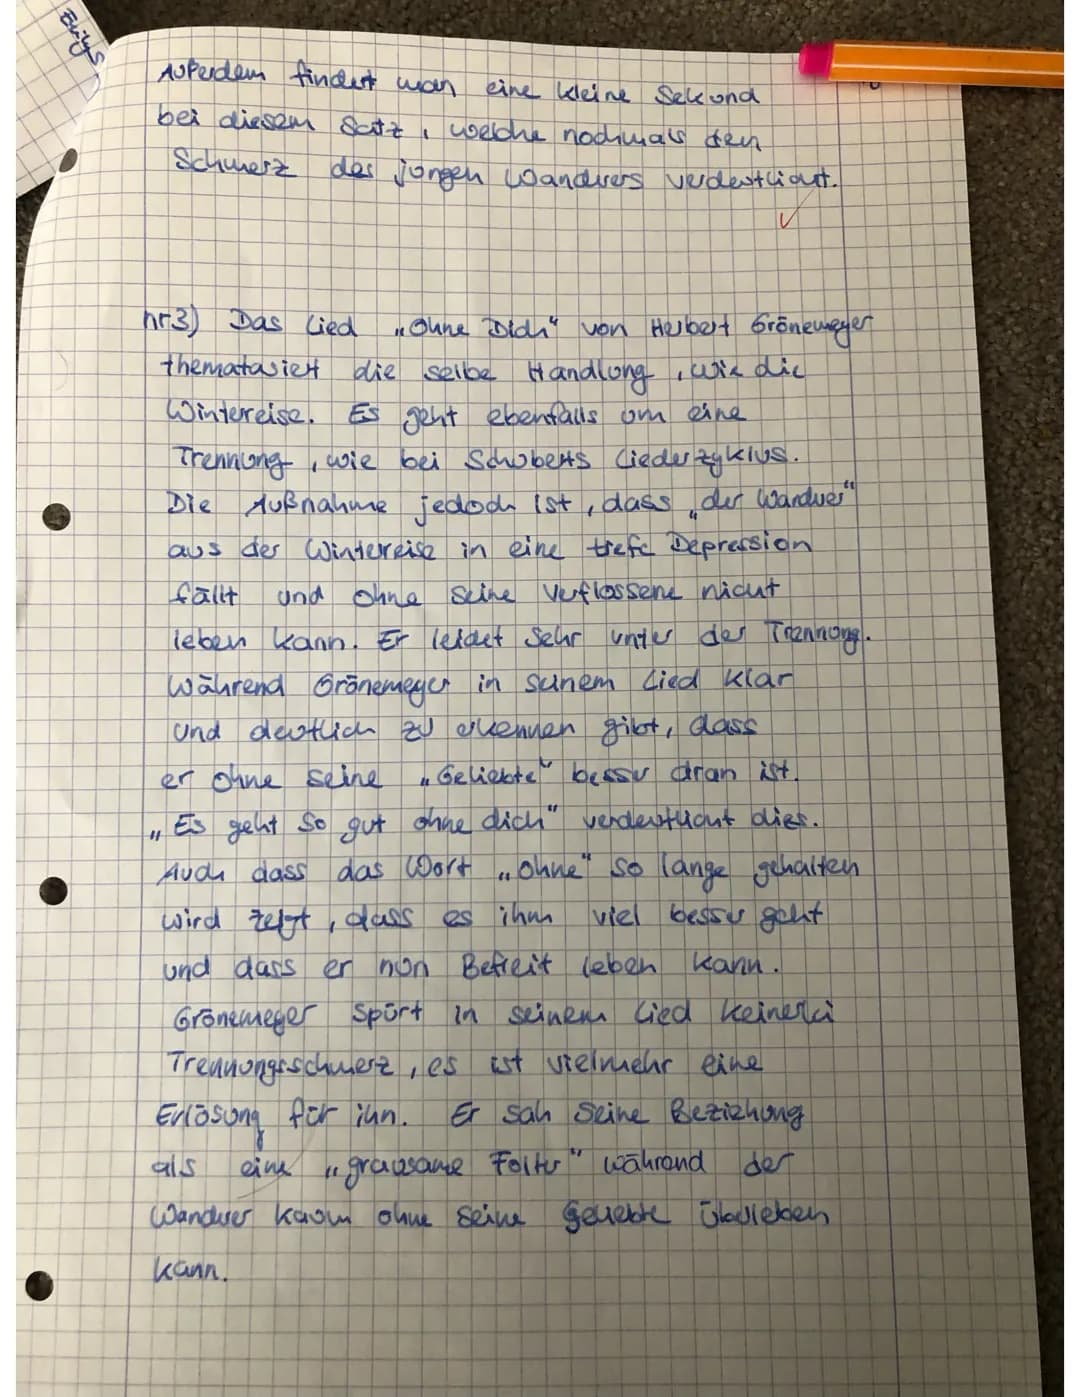 Evtgs
Außerdem findet man eine kleine Sekund
bei diesem Satz, welche nochmals den
Schmerz des jungen Wanderers verdeutlicht.
nr3) Das Lied „Ohne Dich" von Herbert Grönemeyer
thematasiert die selbe Handlung, wie die
Wintereise. Es geht ebenfalls um eine
Trennung, wie bei Schuberts Liederzyklus.
Die Außnahme jedoch ist, dass „der Wandrer"
aus der Wintereise in eine tiefe Depression
fällt und ohne seine Verflossene nicht
leben kann. Er leidet sehr unter der Trennung.
Während Grönemeyer in seinem Lied klar
und deutlich zu erkennen gibt, dass
er ohne seine „Geliebte" besser dran ist.
„Es geht so gut ohne dich" verdeutlicht dies.
Auch dass das Wort „ohne" so lange gehalten
wird zeigt, dass es ihm viel besser geht
und dass er nun Befreit leben kann.
Grönemeyer spürt in seinem Lied keinerlei
Trennungsschmerz, es ist vielmehr eine
Erlösung für ihn. Er sah seine Beziehung
als eine „grausame Folter" während der
Wandrer kaum ohne seine Geliebte überleben
kann.